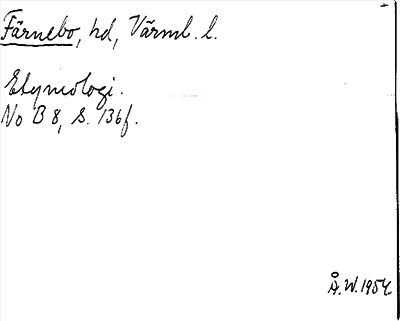 Färnebo, hd, Värml. l.
Etymologi.
No B 8, s. 136f.
Å.W. 1954